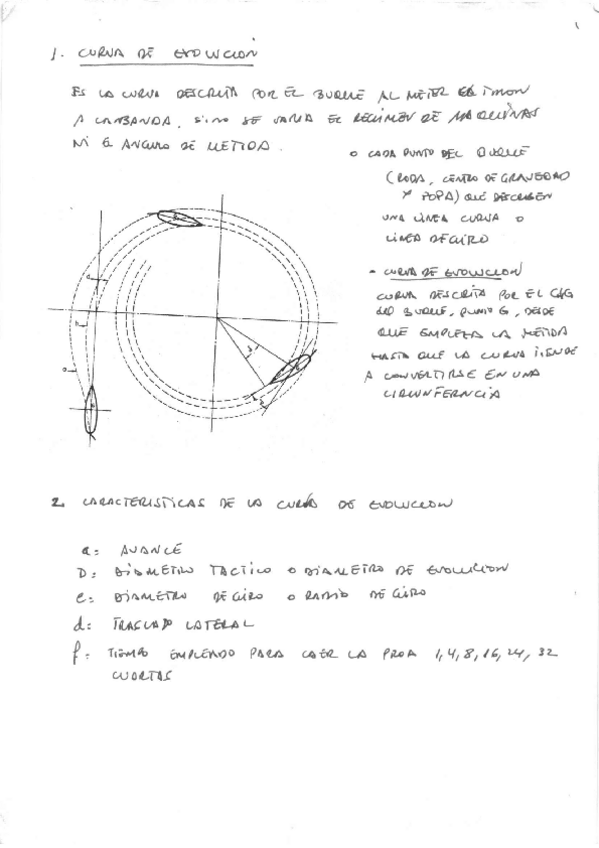 1. CURVA DE EVOLUCION
ES LA CURVA DESCRITA POR EL BUQUE AL METER EL TIMON
A LA BANDA, SI NO SE VARIA EL REGIMEN DE MAQUINAS
NI EL ANGULO DE METIDA.
o CADA PUNTO DEL BUQUE
(RODA, CENTRO DE GRAVEDAD
Y POPA) QUE DESCRIBEN
UNA LINEA CURVA O
LINEA DE GIRO
- CURVA DE EVOLUCION
CURVA DESCRITA POR EL CdG
del BUQUE, PUNTO G, DESDE
QUE EMPIEZA LA METIDA
HASTA QUE LA CURVA TIENDE
A CONVERTIRSE EN UNA
CIRCUNFERNCIA
2. CARACTERISTICAS DE LA CURVA DE EVOLUCION
a: AVANCE
D: DIAMETRO TACTICO o DIAMETRO DE EVOLUCION
e: DIAMETRO DE GIRO o RADIO DE GIRO
d: TRASLADO LATERAL
f: TIEMPO EMPLEADO PARA CAER LA PROA 1,4,8,16,24,32
CUARTAS